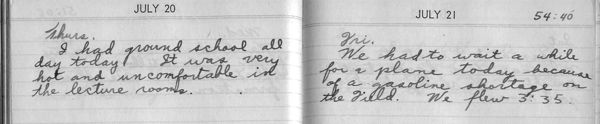 JULY 20
Thurs.
I had ground school all
day today. It was very
hot and uncomfortable in
the lecture rooms.
JULY 21
54:40
Fri.
We had to wait a while
for a plane today because
of a gasoline shortage on
the Field. We flew 3:35.